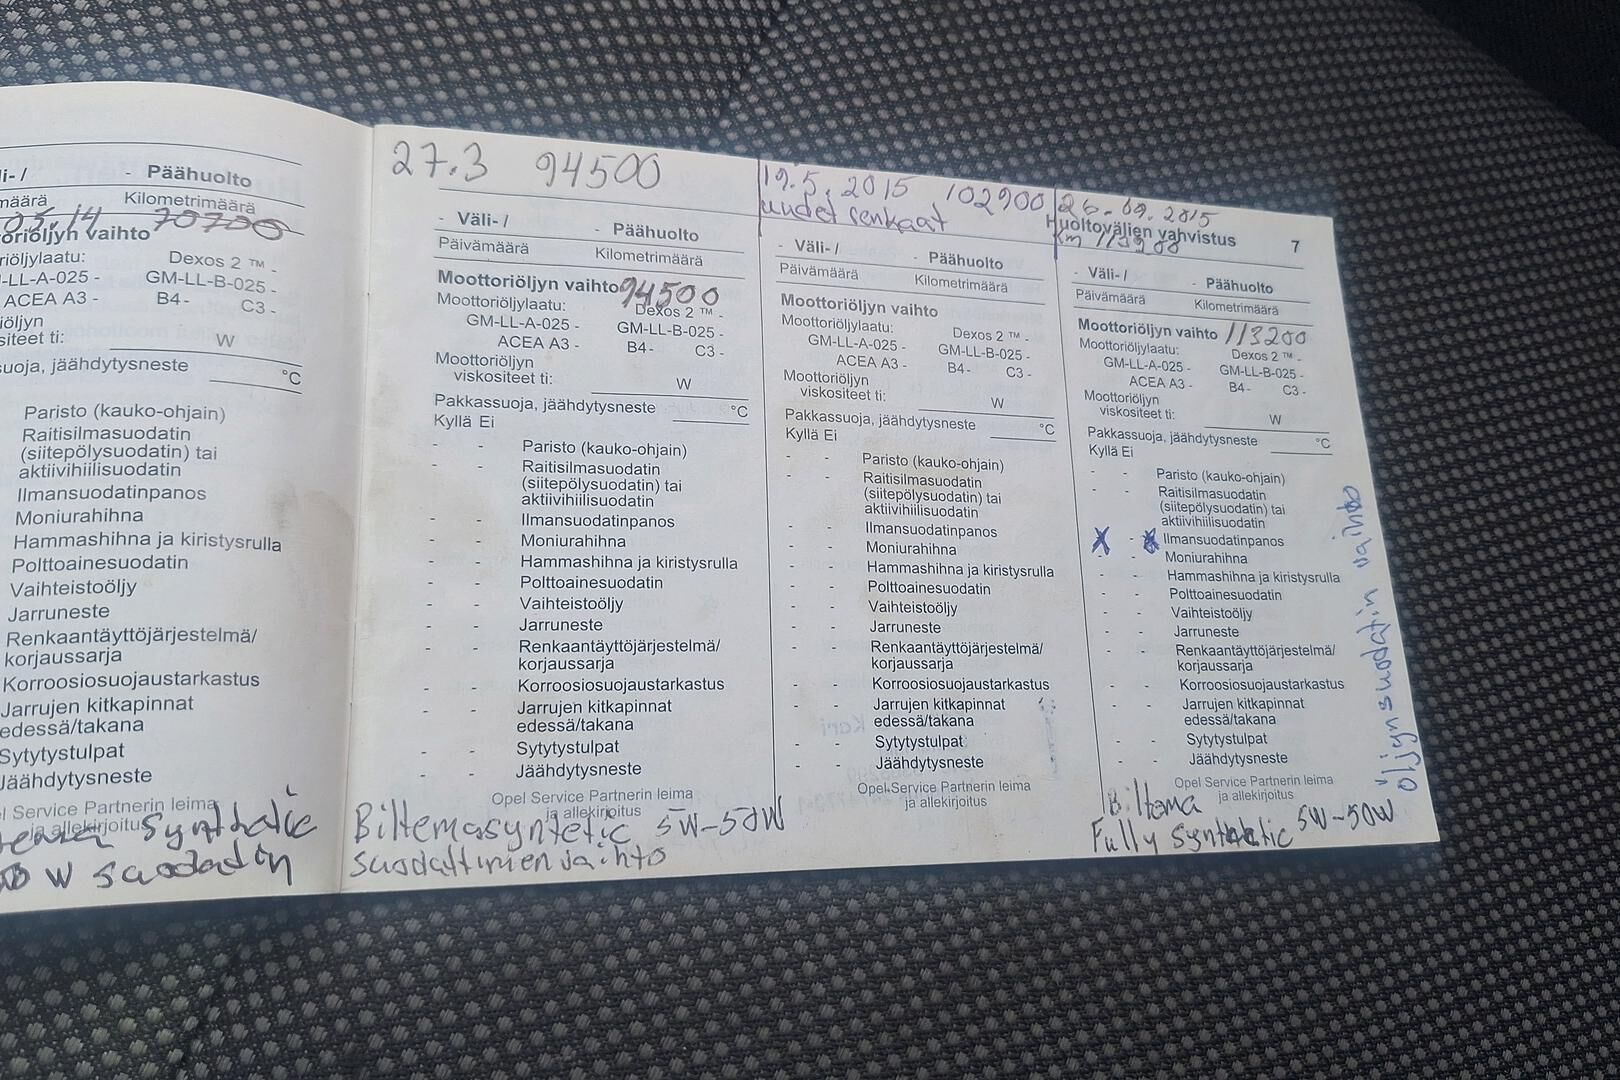 - Päähuolto
Kilometrimäärä
05.14 70700
Moottoriöljyn vaihto
Dexos 2 ™ -
-LL-A-025 - GM-LL-B-025 -
ACEA A3 - B4- C3 -
W
jäähdytysneste °C
Paristo (kauko-ohjain)
Raitisilmasuodatin
(siitepölysuodatin) tai
aktiivihiilisuodatin
Ilmansuodatinpanos
Moniurahihna
Hammashihna ja kiristysrulla
Polttoainesuodatin
Vaihteistoöljy
Jarruneste
Renkaantäyttöjärjestelmä/
korjaussarja
Korroosiosuojaustarkastus
Jarrujen kitkapinnat
edessä/takana
Sytytystulpat
Jäähdytysneste
Service Partnerin leima
ja allekirjoitus
Synthetic
W
27.3 94500
- Väli- / - Päähuolto
Päivämäärä Kilometrimäärä
Moottoriöljyn vaihto 94500
Moottoriöljylaatu: Dexos 2 ™ -
GM-LL-A-025 - GM-LL-B-025 -
ACEA A3 - B4- C3 -
Moottoriöljyn
viskositeet ti: W
Pakkassuoja, jäähdytysneste °C
Kyllä Ei
- - Paristo (kauko-ohjain)
- - Raitisilmasuodatin
(siitepölysuodatin) tai
aktiivihiilisuodatin
- - Ilmansuodatinpanos
- - Moniurahihna
- - Hammashihna ja kiristysrulla
- - Polttoainesuodatin
- - Vaihteistoöljy
- - Jarruneste
- - Renkaantäyttöjärjestelmä/
korjaussarja
- - Korroosiosuojaustarkastus
- - Jarrujen kitkapinnat
edessä/takana
- - Sytytystulpat
- - Jäähdytysneste
Opel Service Partnerin leima
ja allekirjoitus
Biltema syntetic 5W-50W
suodattimen vaihto
19.5.2015 102900
uudet renkaat
- Väli- / - Päähuolto
Päivämäärä Kilometrimäärä
Moottoriöljyn vaihto
Moottoriöljylaatu: Dexos 2 ™ -
GM-LL-A-025 - GM-LL-B-025 -
ACEA A3 - B4- C3 -
Moottoriöljyn
viskositeet ti: W
Pakkassuoja, jäähdytysneste °C
Kyllä Ei
- - Paristo (kauko-ohjain)
- - Raitisilmasuodatin
(siitepölysuodatin) tai
aktiivihiilisuodatin
- - Ilmansuodatinpanos
- - Moniurahihna
- - Hammashihna ja kiristysrulla
- - Polttoainesuodatin
- - Vaihteistoöljy
- - Jarruneste
- - Renkaantäyttöjärjestelmä/
korjaussarja
- - Korroosiosuojaustarkastus
- - Jarrujen kitkapinnat
edessä/takana
- - Sytytystulpat
- - Jäähdytysneste
Opel Service Partnerin leima
ja allekirjoitus
26.09.2015
Huoltovälien vahvistus 7
km 113200
- Väli- / - Päähuolto
Päivämäärä Kilometrimäärä
Moottoriöljyn vaihto 113200
Moottoriöljylaatu: Dexos 2 ™ -
GM-LL-A-025 - GM-LL-B-025 -
ACEA A3 - B4- C3 -
Moottoriöljyn
viskositeet ti: W
Pakkassuoja, jäähdytysneste °C
Kyllä Ei
- - Paristo (kauko-ohjain)
- - Raitisilmasuodatin
(siitepölysuodatin) tai
aktiivihiilisuodatin
X - Ilmansuodatinpanos
- - Moniurahihna
- - Hammashihna ja kiristysrulla
- - Polttoainesuodatin
- - Vaihteistoöljy
- - Jarruneste
- - Renkaantäyttöjärjestelmä/
korjaussarja
- - Korroosiosuojaustarkastus
- - Jarrujen kitkapinnat
edessä/takana
- - Sytytystulpat
- - Jäähdytysneste
Opel Service Partnerin leima
ja allekirjoitus
Biltema
Fully Synthetic 5W-50W
öljynsuodatin vaihto